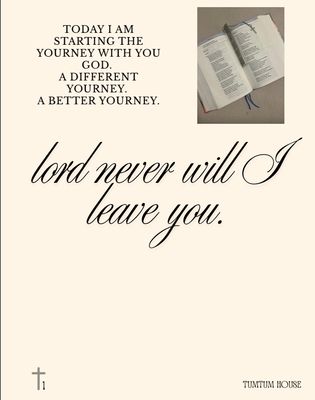 TODAY I AM
STARTING THE
YOURNEY WITH YOU
GOD.
A DIFFERENT
YOURNEY.
A BETTER YOURNEY.
lord never will I
leave you.
1
TUMTUM HOUSE